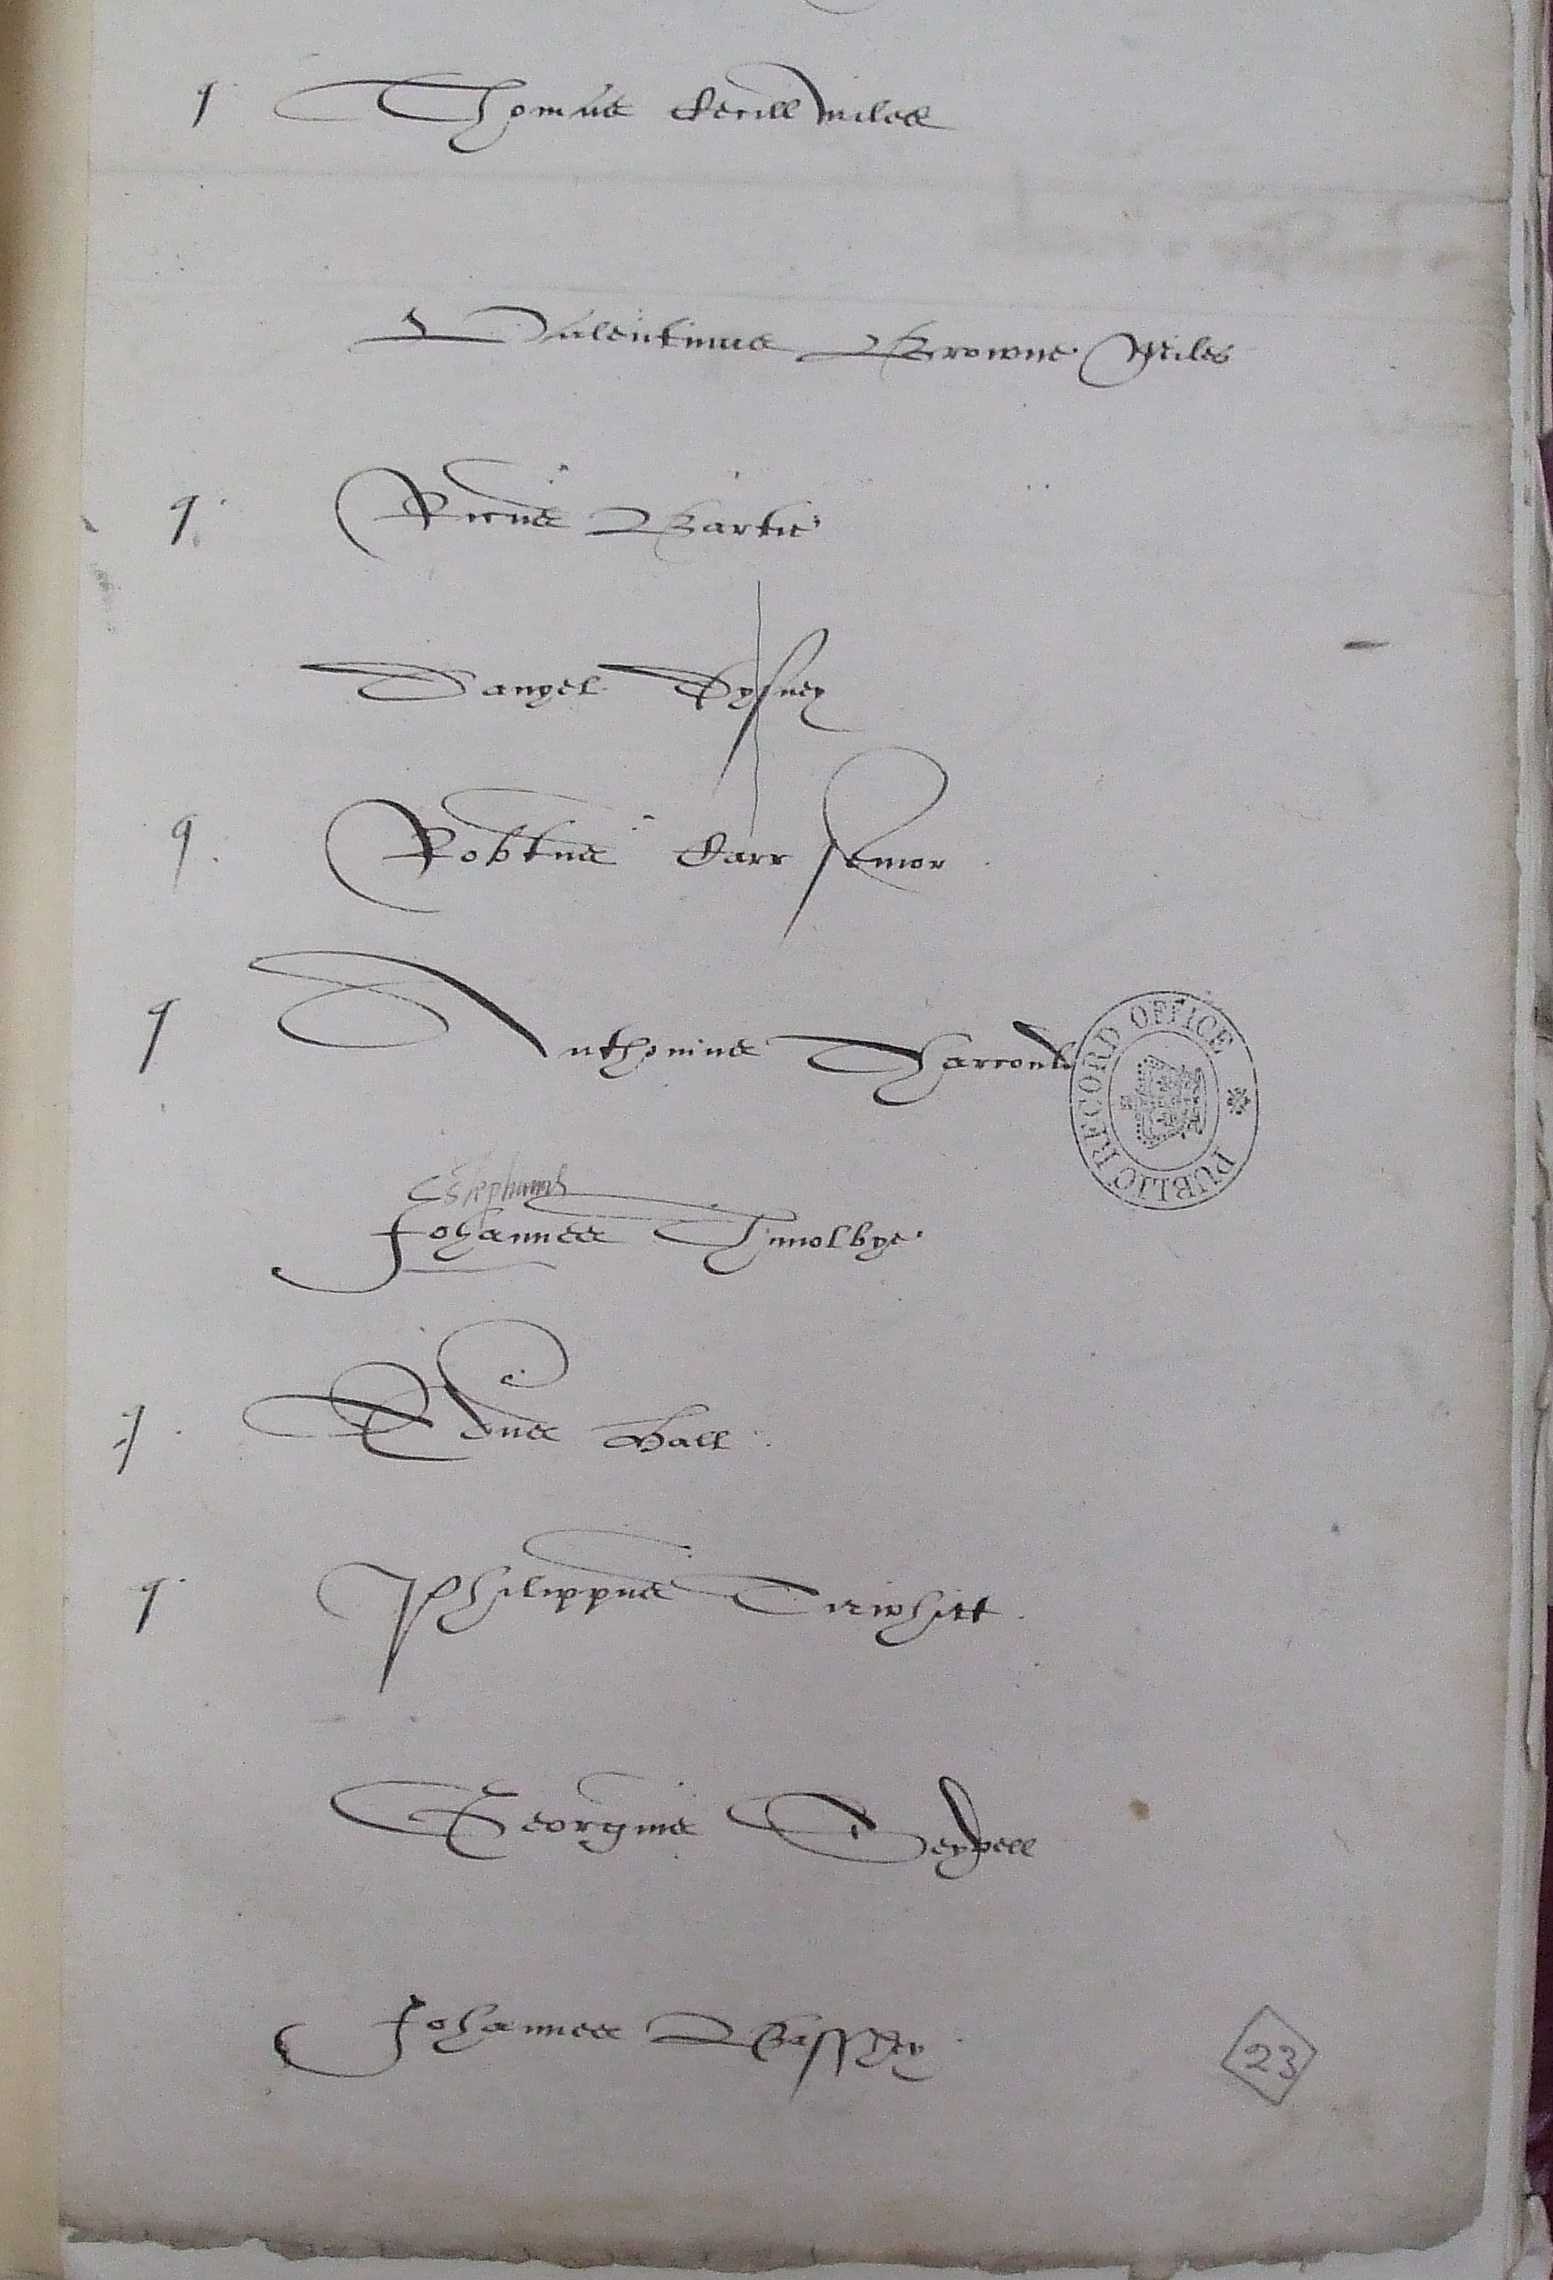 q Thomas Cecill miles
Valentinus Browne Miles
q Ricus Bartie
Danyel Dysney
q Robtus Carr senior
q Anthonius Tharrould
Stephanus
Johannes Thimolbye
q Edus Hall
q Philippus Tirwhitt
Georgius Seypoll
Johannes Bassett
PUBLIC RECORD OFFICE
23